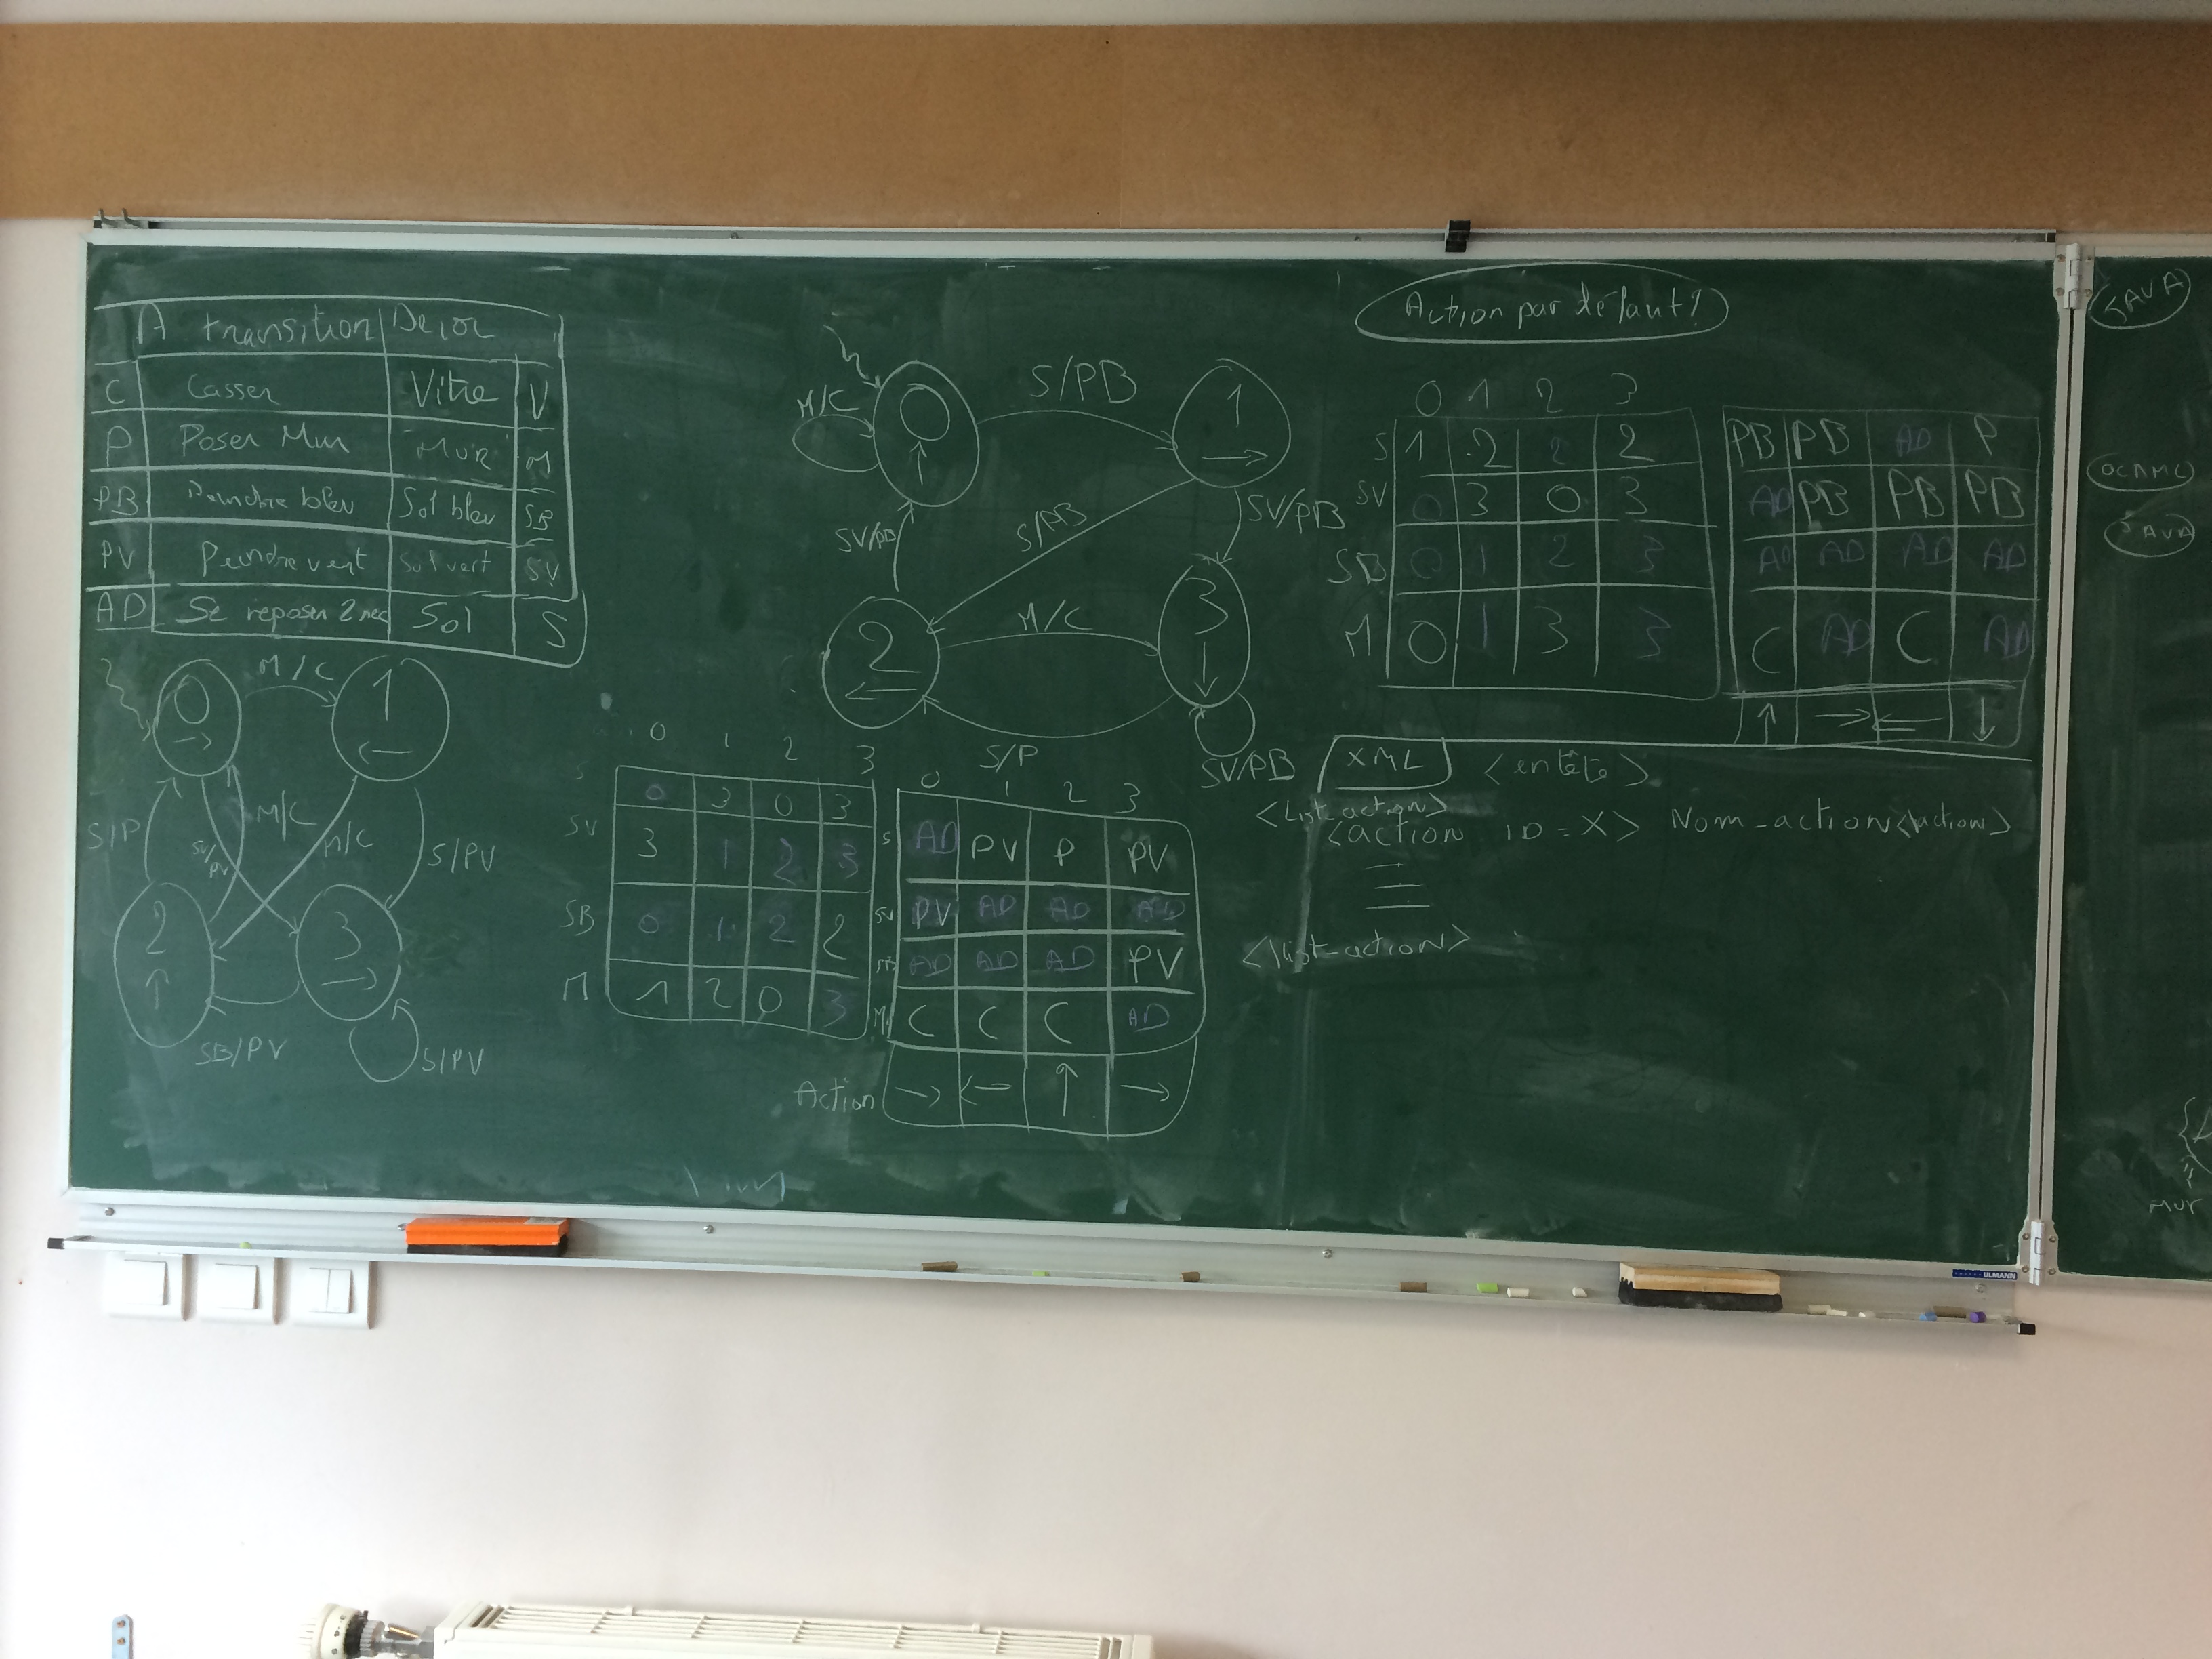 A transition Decor
C Casser Vitre V
P Poser Mur Mur M
PB Peindre bleu Sol bleu SB
PV Peindre vert Sol vert SV
AD Se reposer Sol S
0 →
M/C
1 ←
S/P
SV/PV
M/C
M/C
S/PV
2 ↑
3 →
SB/PV
S/PV
M/C
0 ↑
S/PB
1 →
SV/PB
S/PB
SV/PB
2 ←
M/C
3 ↓
S/P
SV/PB
0 1 2 3
S 0 3 0 3
SV 3 1 2 3
SB 0 1 2 2
M 1 2 0 3
0 1 2 3
S AD PV P PV
SV PV AD AD AD
SB AD AD AD PV
M C C C AD
Action → ← ↑ →
Action par défaut
0 1 2 3
S 1 2 2 2
SV 0 3 0 3
SB 0 1 2 3
M 0 1 3 3
PB PB AD P
AD PB PB PB
AD AD AD AD
C AD C AD
↑ → ← ↓
XML <entête>
<list_action>
<action ID = X> Nom_action </action>
</list_action>
SAVA
OCAML
mur
ULMANN